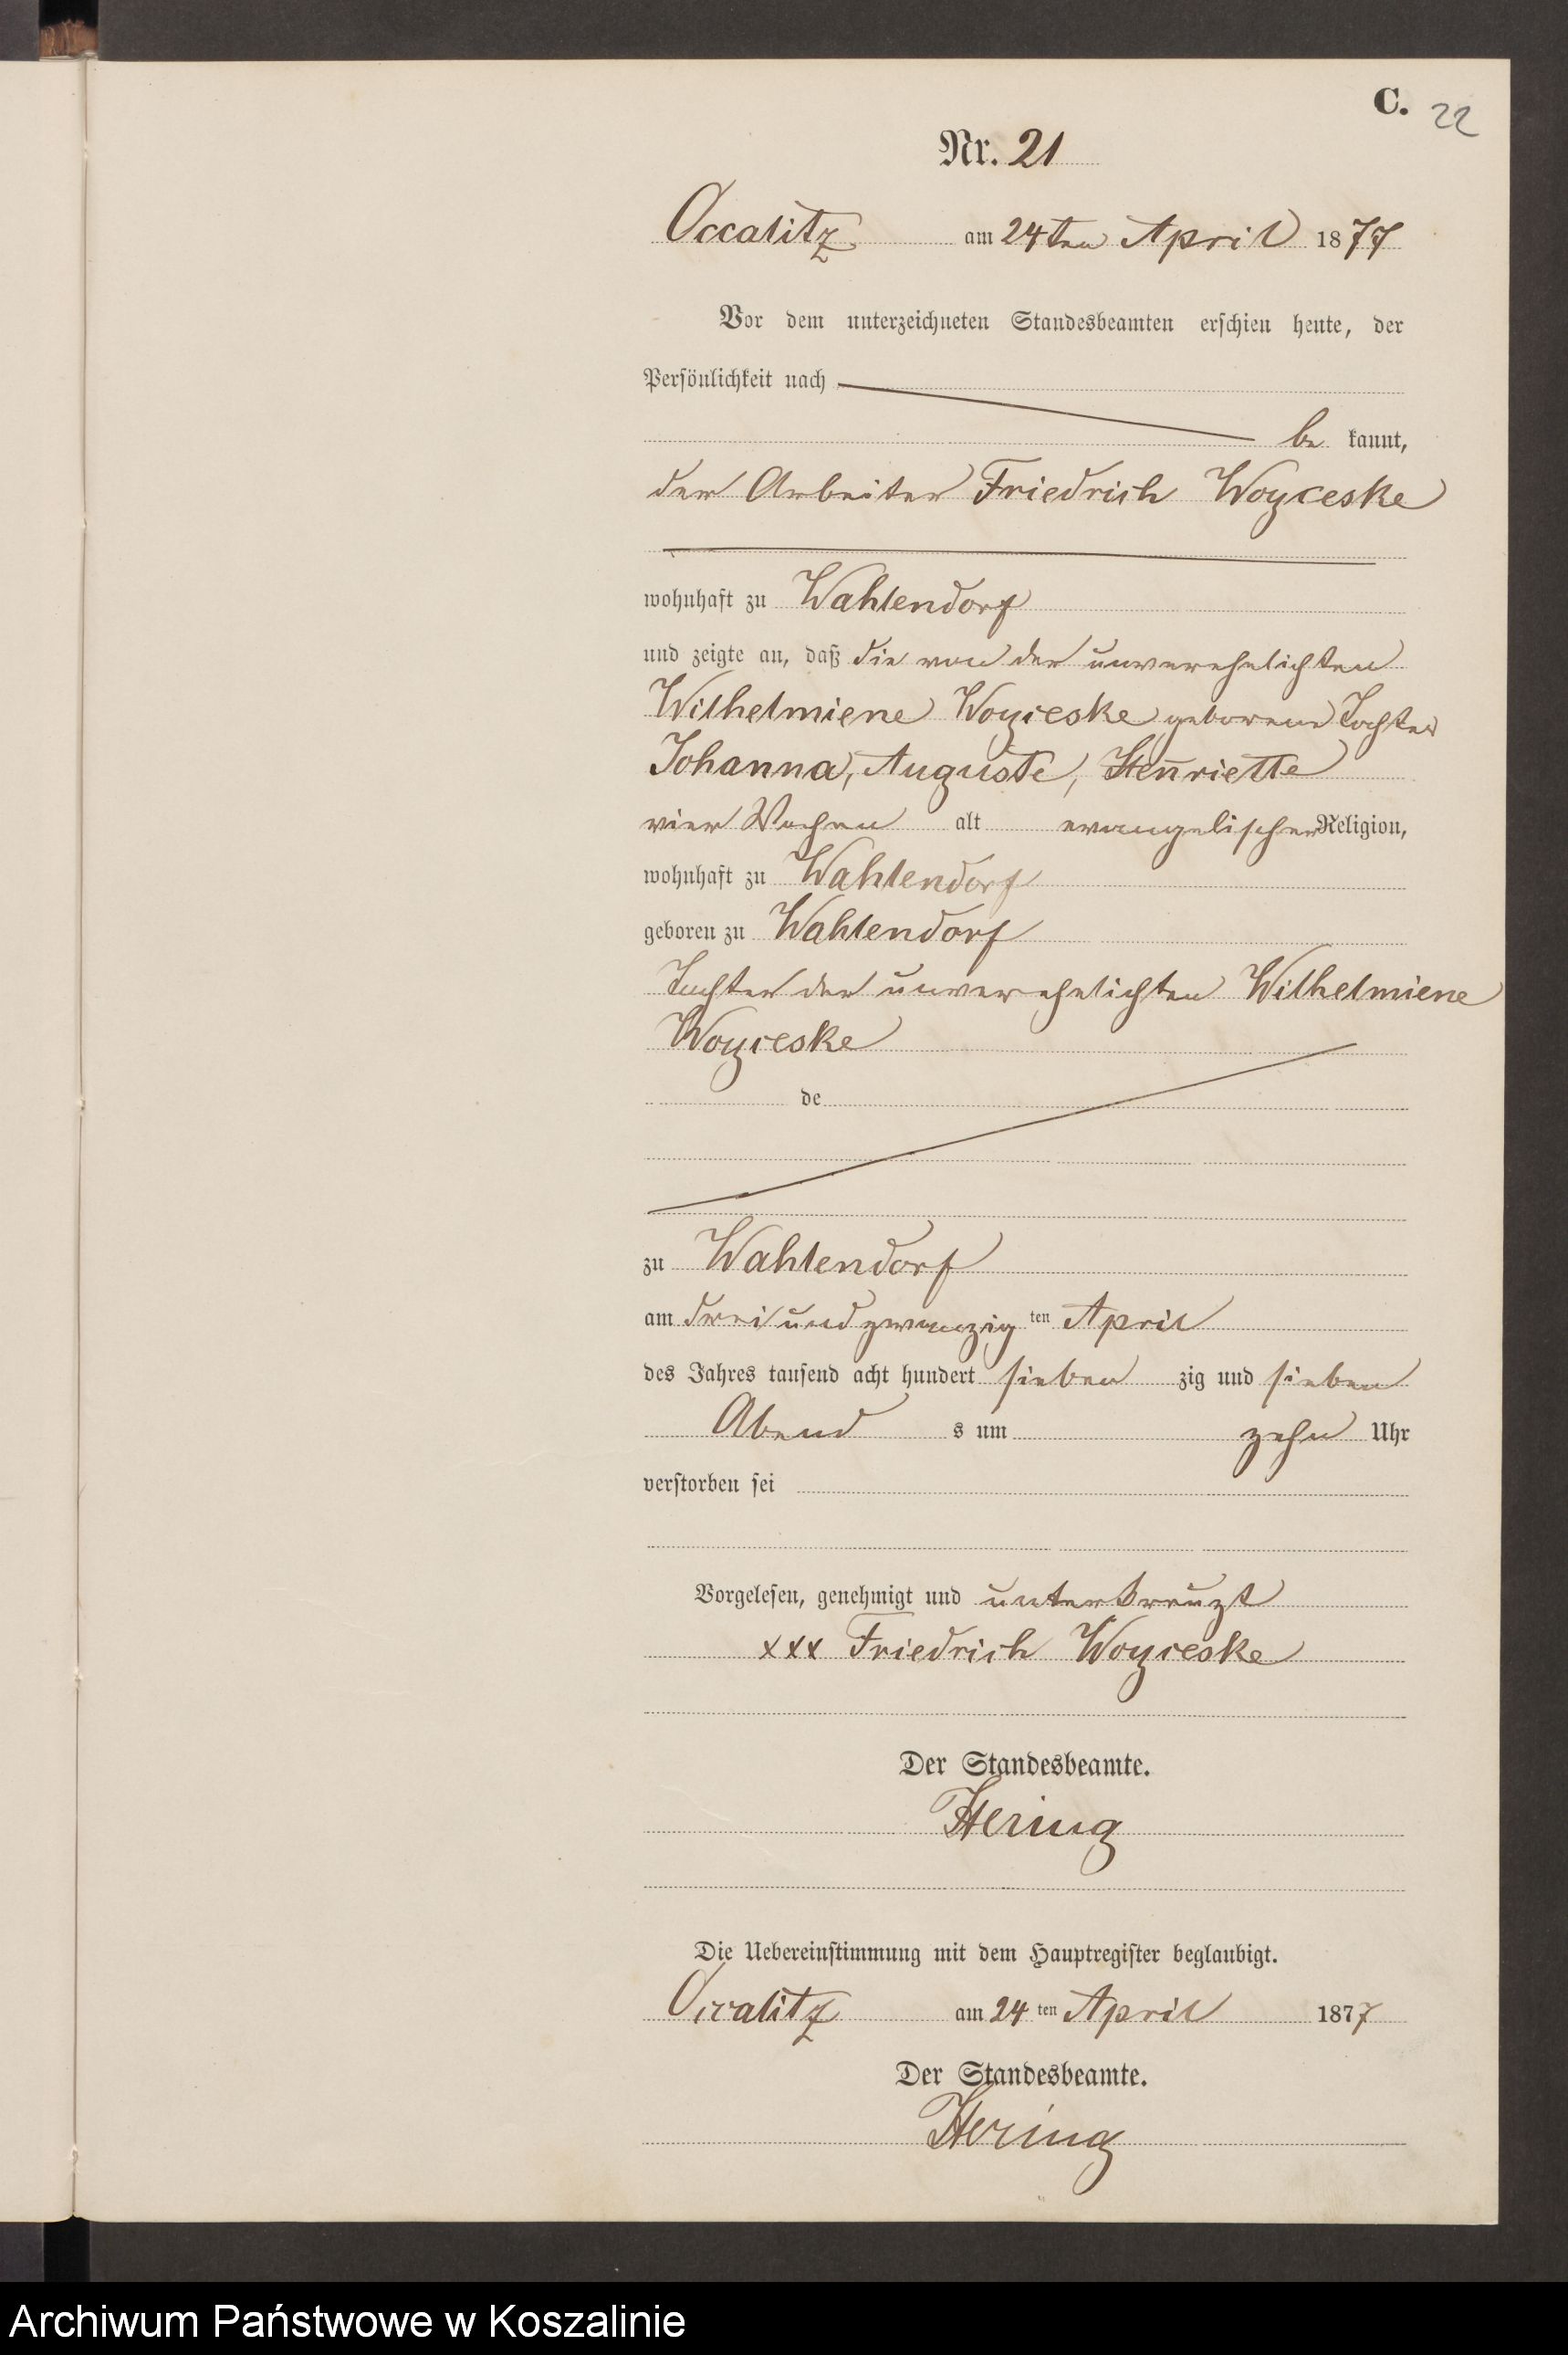 C. 22
Nr. 21
Occalitz am 24ten April 1877
Vor dem unterzeichneten Standesbeamten erschien heute, der
Persönlichkeit nach
be kannt,
der Arbeiter Friedrich Woyceske
wohnhaft zu Wahlendorf
und zeigte an, daß die von der unverehelichten
Wilhelmiene Woyceske geborene Tochter
Johanna, Auguste, Hen̄riette
vier Wochen alt evangelischer Religion,
wohnhaft zu Wahlendorf
geboren zu Wahlendorf
Tochter der unverehelichten Wilhelmiene
Woyceske
de
zu Wahlendorf
am drei und zwanzig ten April
des Jahres tausend acht hundert sieben zig und sieben
Abend s um zehn Uhr
verstorben sei
Vorgelesen, genehmigt und unterkreuzt
xxx Friedrich Woyceske
Der Standesbeamte.
Hering
Die Uebereinstimmung mit dem Hauptregister beglaubigt.
Occalitz am 24 ten April 1877
Der Standesbeamte.
Hering
Archiwum Państwowe w Koszalinie